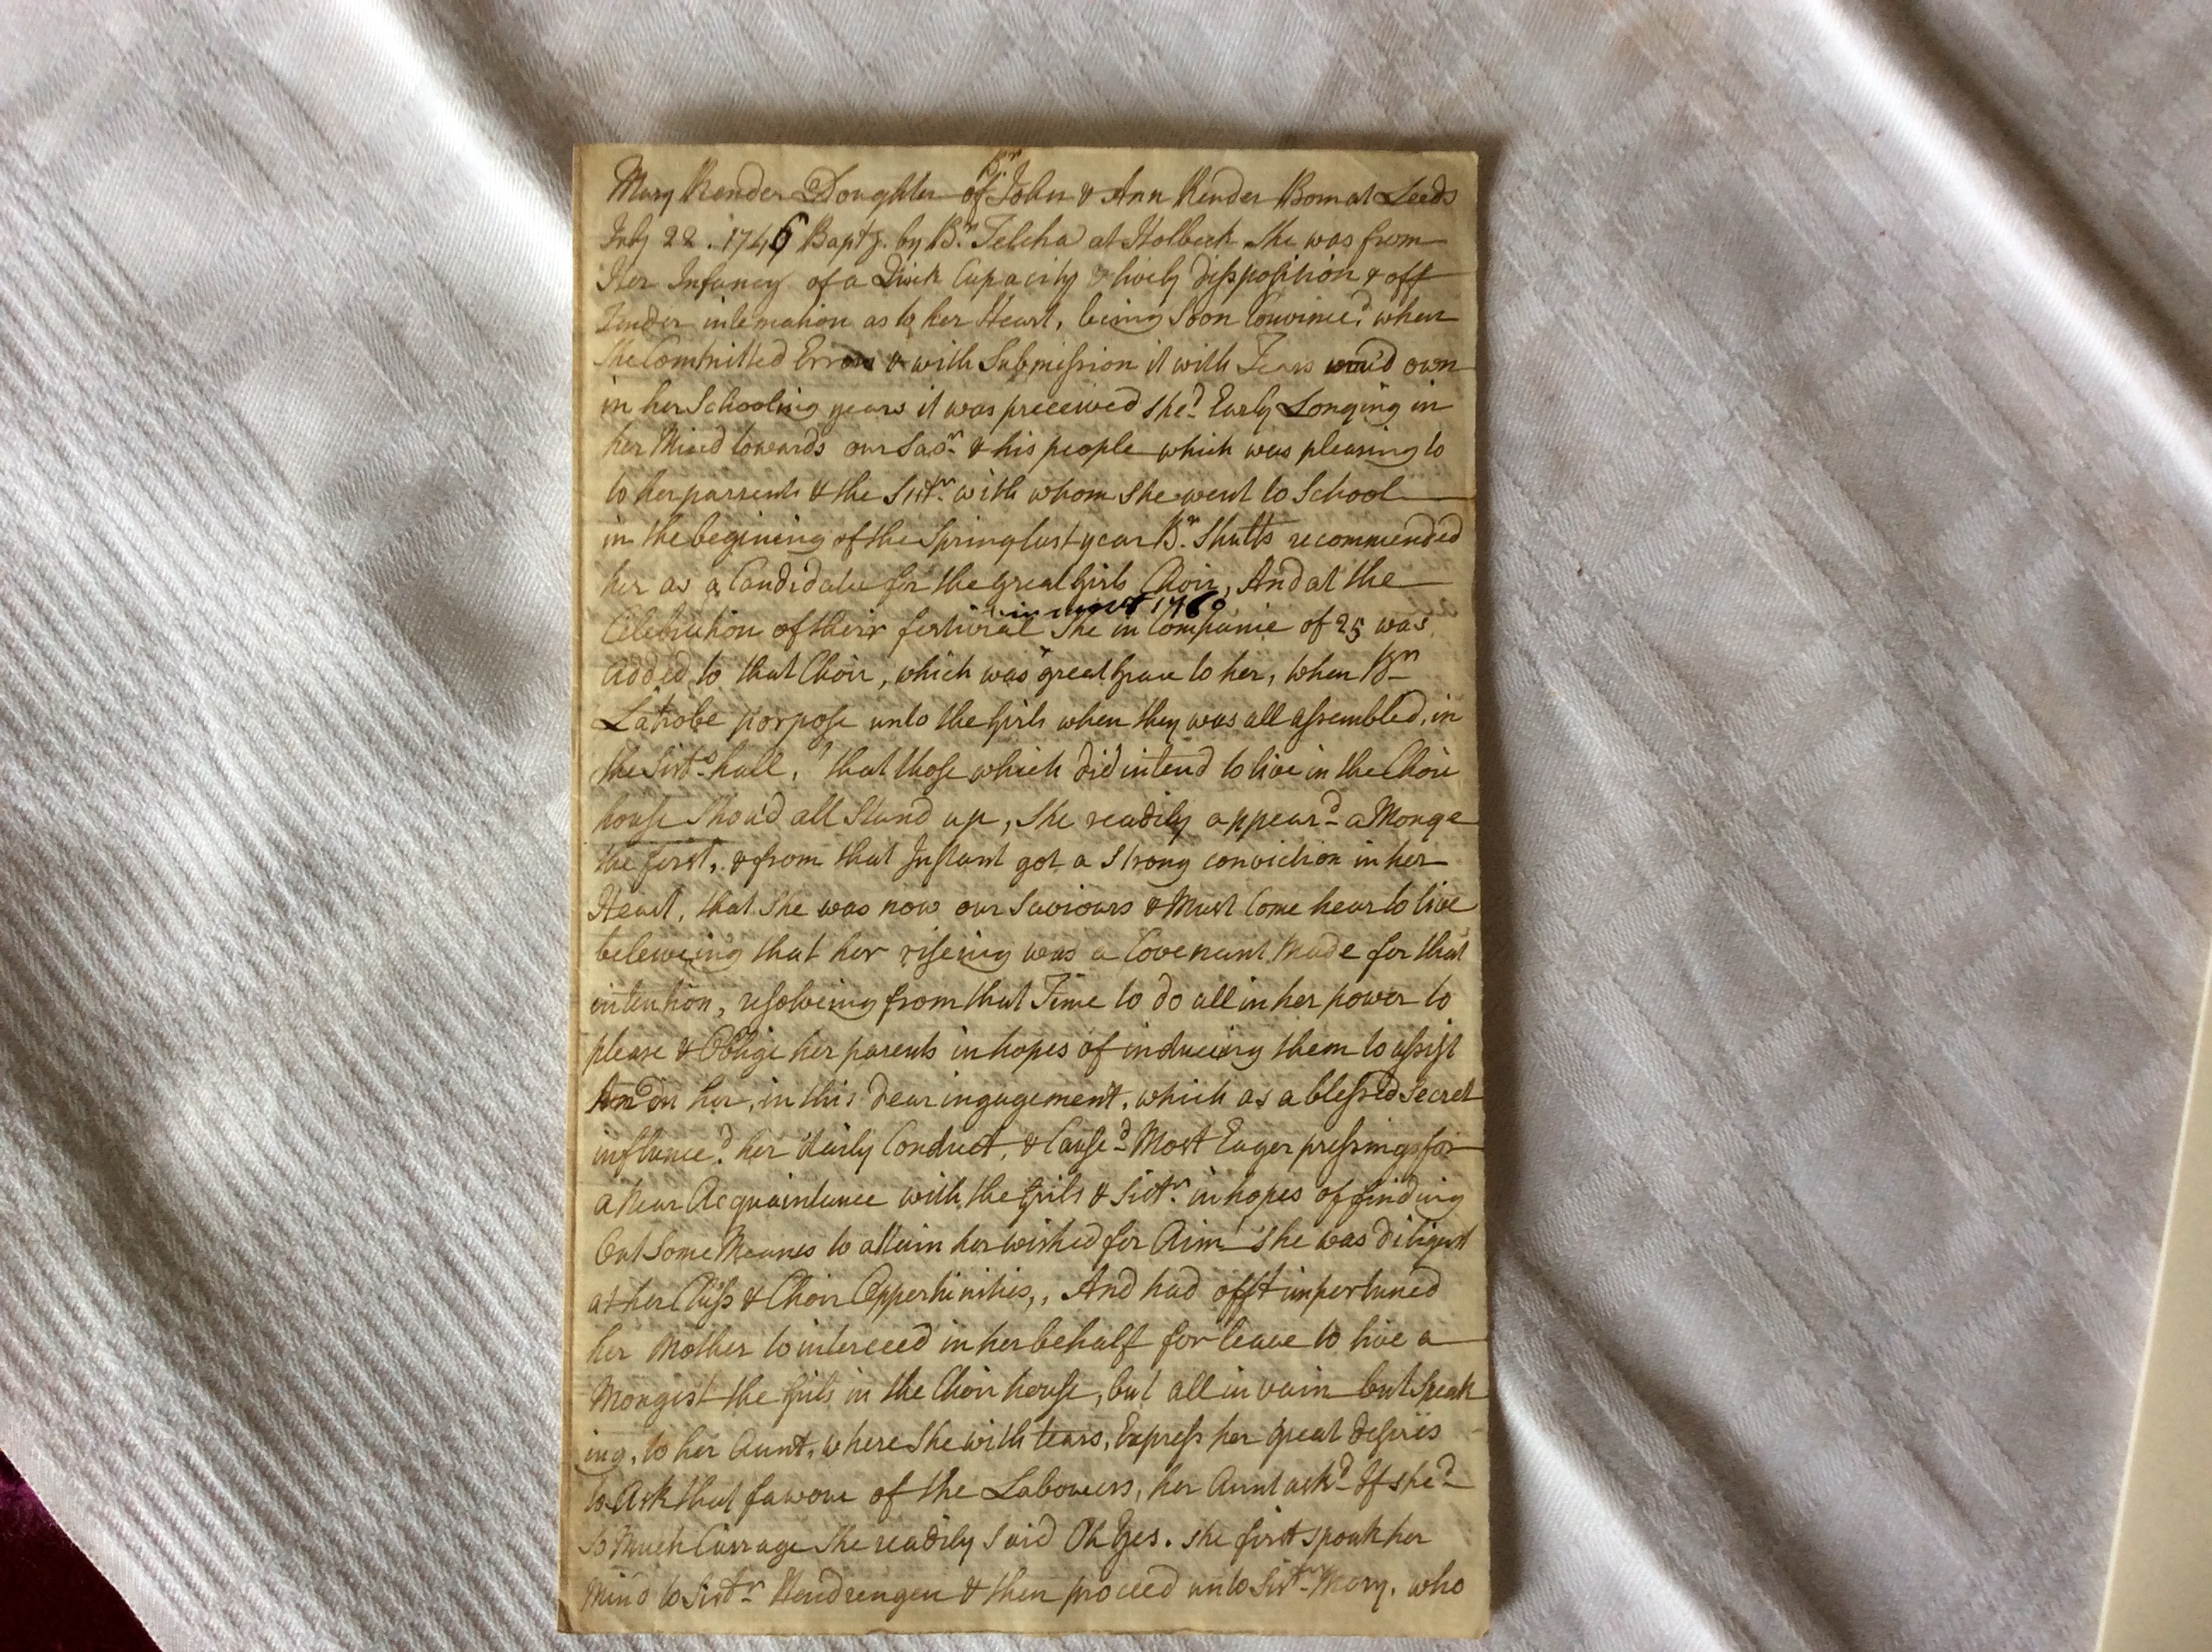 Mary Render Doughter of Br John & Ann Render Born at Leeds
July 22. 1746 Baptz. by Br. Telcha at Holbeck. She was from
Her Infancy of a Quick Capacity & lively disposition & off
Tender intemation as to her Heart, being Soon Convince'd when
She Committed Errors & with Submission it with Tears wou'd own
in her Schooling years it was preceived she'd Early Longing in
her Mind towards our Savr. & his people which was pleasing to
to her parrents & the Sistr. with whom she went to School
in the begining of the Spring last year Br. Shutts recommended
her as a Candidate for the great Girls Choir, And at the
in 1760
Celebration of their festiviral She in Companie of 25 was
added to that Choir, which was great Grace to her, when Br
Latrobe porpose unto the Girls when they was all assembled, in
the Sistrs hall, that those which did intend to live in the Choir
house Shou'd all Stand up, She readily appear'd a Monge
the first, & from that Instant got a Strong conviction in her
Heart, that She was now our Saviours & Must Come hear to live
beleweing that her riseing was a Covenant Made for that
intention, resolveing from that Time to do all in her power to
please & Oblige her parents in hopes of induceing them to assist
her, in this dear ingagement, which as a blessed Secret
influnce'd her dairly Conduct, & Cause'd Most Eager pressings for
a Near Acquaintance with the Girls & Sistr. in hopes of finding
Out Some Meanes to attain her wished for Aim She was diligent
at her Class & Choir Oppertunities,, And had offt importuned
her Mother to interceed in her behalf for leave to live a
Mongist the Girls in the Choir house, but all in vain but Speak
ing, to her Aunt, where She with tears, Express her great desires
to Ask that favour of the Labourers, her Aunt ask'd If she'd
So Much Currage She readily Said Oh Yes. she first spoak her
Mind to Sistr Hendrengen & then proceed unto Sistr Mary. who